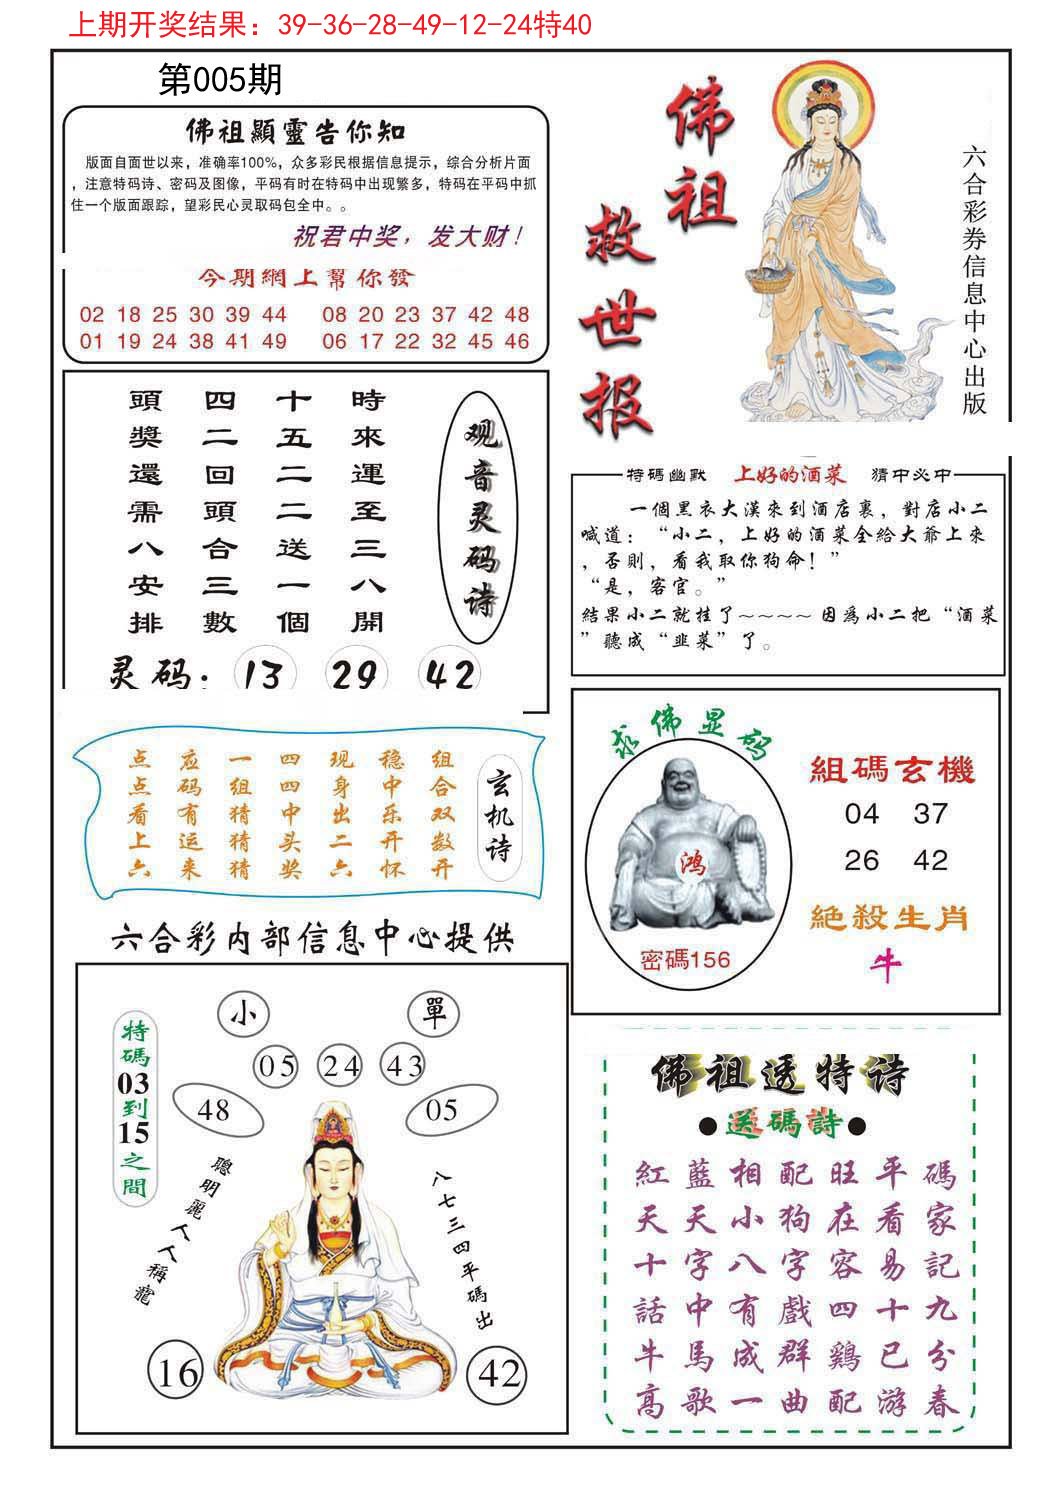 上期开奖结果：39-36-28-49-12-24特40
第005期
佛祖顯靈告你知
版面自面世以来，准确率100%，众多彩民根据信息提示，综合分析片面
，注意特码诗、密码及图像，平码有时在特码中出现繁多，特码在平码中抓
住一个版面跟踪，望彩民心灵取码包全中。。
祝君中奖，发大财！
今期網上幫你發
02 18 25 30 39 44 08 20 23 37 42 48
01 19 24 38 41 49 06 17 22 32 45 46
佛祖
救世报
六合彩券信息中心出版
观音灵码诗
時來運至三八開
十五二二送一個
四二回頭合三數
頭獎還需八安排
灵码：13 29 42
特碼幽默 上好的酒菜 猜中必中
一個黑衣大漢來到酒店裏，對店小二
喊道：“小二，上好的酒菜全給大爺上來
，否則，看我取你狗命！”
“是，客官。”
結果小二就挂了~~~~因爲小二把“酒菜
”聽成“韭菜”了。
玄机诗
组合双数开
稳中乐开怀
现身出二六
四四中头奖
一组猜猜猜
应码有运来
点点看上六
求佛显码
鸿
密碼156
組碼玄機
04 37
26 42
絕殺生肖
牛
六合彩内部信息中心提供
小 單
05 24 43
48 05
特碼03到15之間
聰明麗人人稱寵
八七三四平碼出
16 42
佛祖透特诗
●送碼詩●
紅藍相配旺平碼
天天小狗在看家
十字八字容易記
話中有戲四十九
牛馬成群鷄已分
高歌一曲配游春